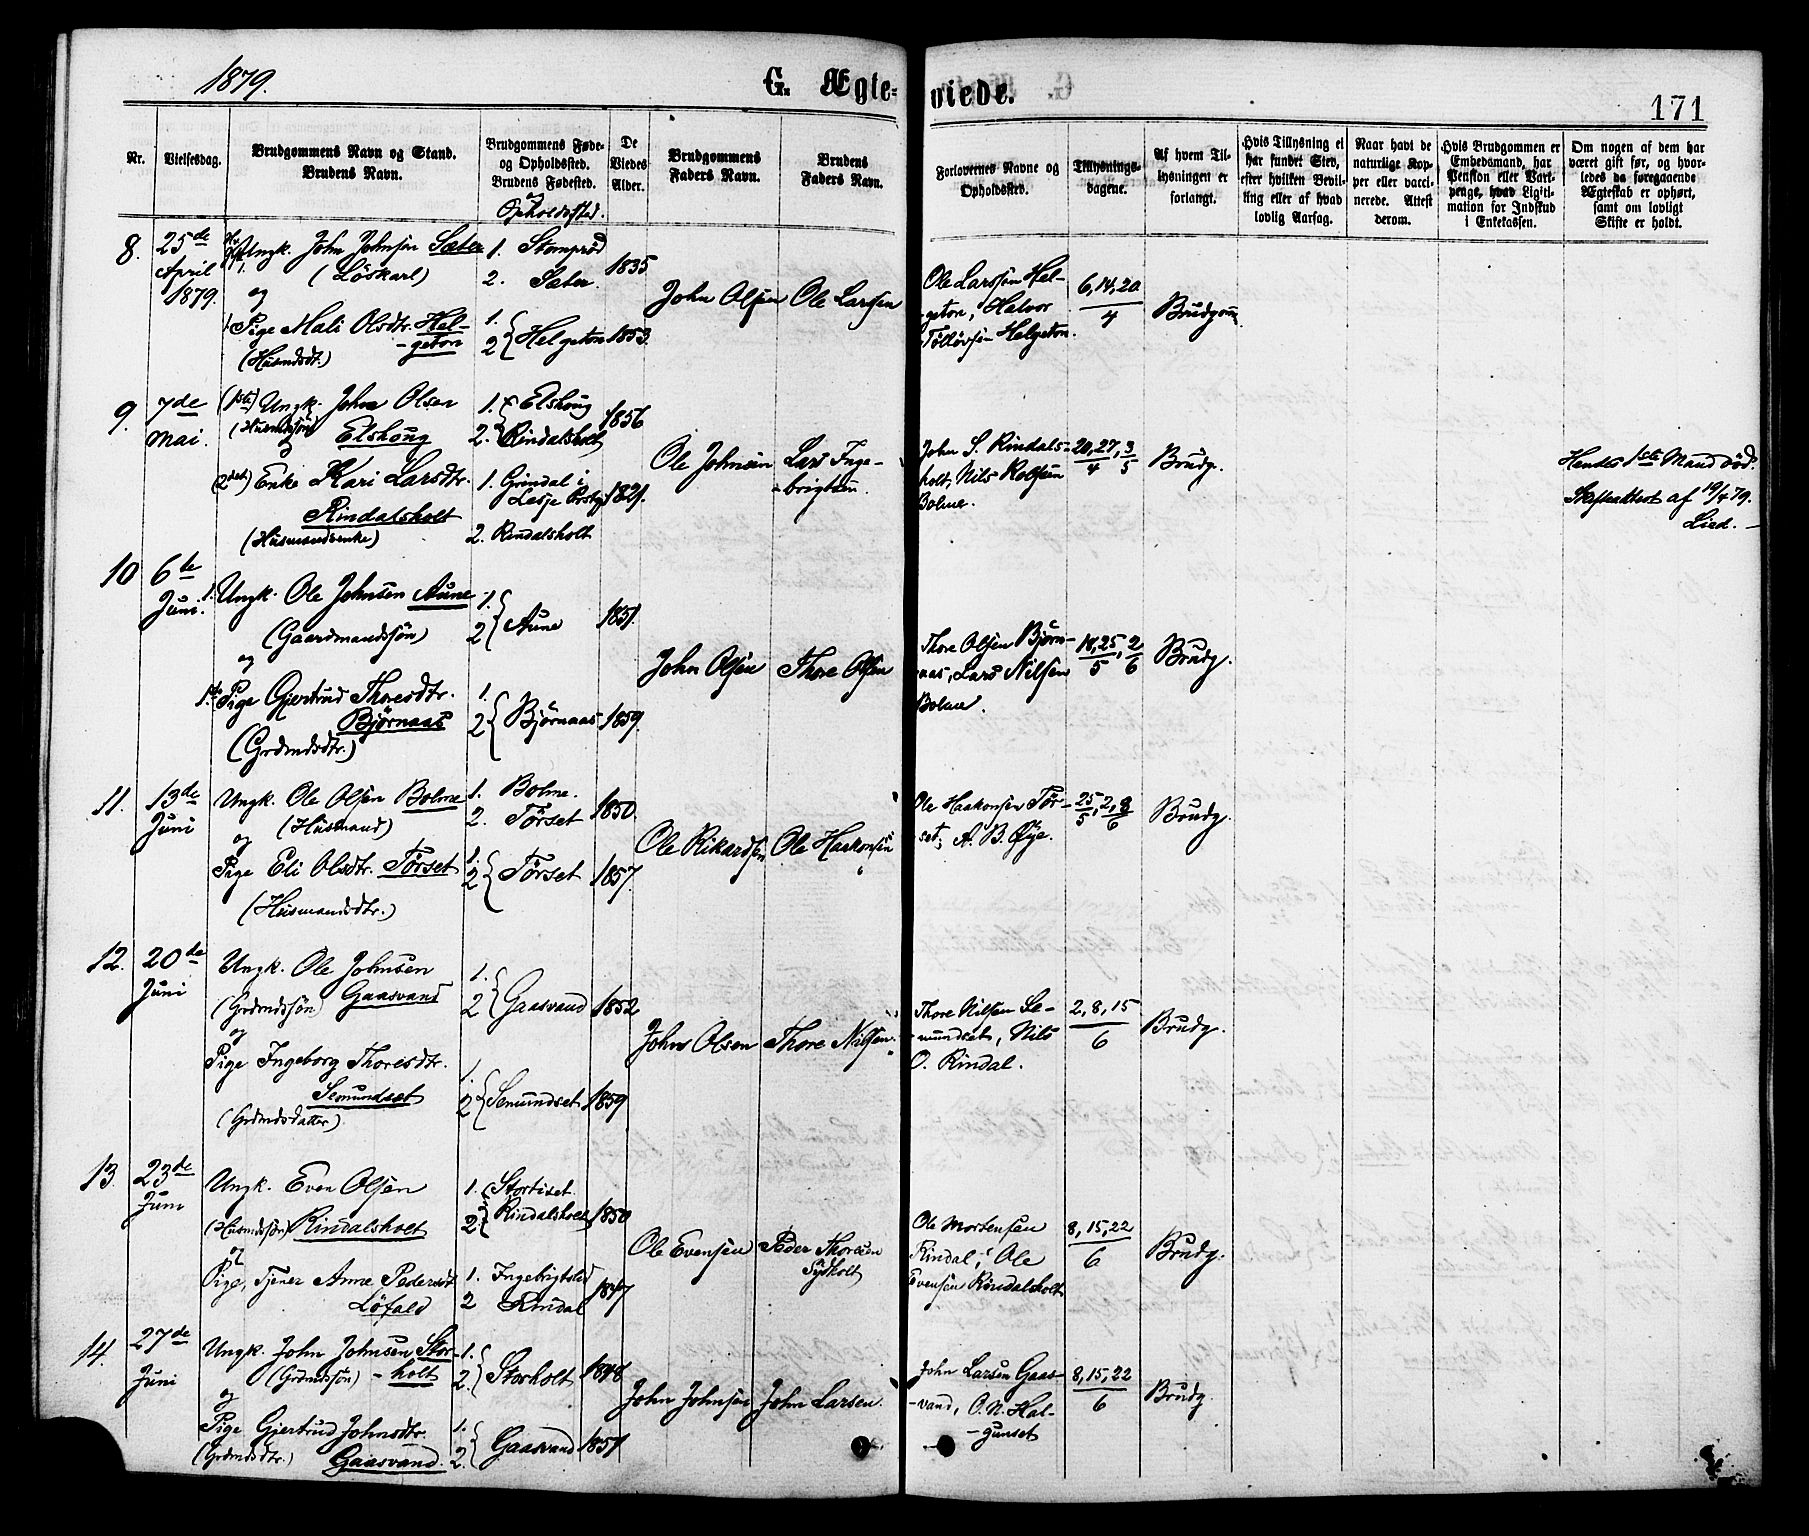 1879.
G. Ægte-
viede.
171
Nr.
Vielsesdag.
Brudgommens Navn og Stand.
Brudens Navn.
Brudgommens Føde-
og Opholdssted.
Brudens Fødested.
og
Opholdssted.
De
Viedes
Alder.
Brudgommens
Faders Navn.
Brudens
Faders Navn.
Forlovernes Navne og
Opholdssted.
Tillysnings-
dagene.
Af hvem Til-
lysningen er
forlangt.
Hvis Tillysning ei
har fundet Sted,
efter hvilken Bevil-
ling eller af hvad
lovlig Aarsag.
Naar havt de
naturlige Kop-
per eller vacci-
nerede. Attest
derom.
Hvis Brudgommen er
Embedsmand, har
Pension eller Vart-
penge, hvad Ligiti-
mation for Indskud
i Enkekassen.
Om nogen af dem har
været gift før, og hvor-
ledes da foregaaende
Ægteskab er ophørt,
samt om lovligt
Skifte er holdt.
8.
25de
April
1879.
Ungk. John Johnsen Sæter
(Löskarl)
og
Pige Mali Olsdtr. Hel-
-geton
(Husmdsdt.)
1. Stomprød
2. Sæter.
1.
2 Helgeton
1835.
1853.
John Olsen
Ole Larsen
Ole Larssen Hel-
-geton, Halvor
Tölløvsen Helgeton.
6, 14, 20
4
Brudgom.
9.
7de
Mai.
(1ste) Ungk. John Olsen
(Husmdssøn) Elshoug
og
(2det) Enke Kari Larsdtr.
Rindalsholt
(Husmandsenke)
1. Elshoug
2. Rindalsholt
1. Grindal i
Lesje Prstgj.
2. Rindalsholt
1856
1821.
Ole Johnsen
Lars Inge-
-brigtsen.
John S. Rindals-
holt, Nils Rolfsen
Bolme.
20, 27, 3
4 5
Brudg.
Hendes 1ste Mand död.
Skifteattest af 19/4 79.
Lied. -
10
6te
Juni.
1. Ungk. Ole Johnsen Aune
(Gaardmandssøn)
og
1ste Pige Gjertrud Thoresdtr.
Bjørnaas
(Grdmdsdtr.)
1.
2 Aune
1.
2 Bjørnaas
1851.
1859.
John Olsen
Thore Olsen
Thore Olsen Bjørn-
aas, Lars Nilsen
Bolme.
18, 25, 2
5 6
Brudg.
11.
13de
Juni
Ungk. Ole Olsen Bolme
(Husmand)
og
Pige Eli Olsdtr. Tørset
(Husmandsdtr.)
1. Bolme.
2. Tørset
1.
2 Tørset
1850.
1857.
Ole Rikardsen
Ole Haakonsen
Ole Haakonsen Tør-
set, A. B. Øye.
25, 2, 8
5 6
Brudg.
12.
20de
Juni
Ungk. Ole Johnsen
(Grdmdssøn) Gaasvand
og
Pige Ingeborg Thoresdtr.
Semundset
(Grdmdsdatter)
1.
2 Gaasvand
1.
2 Semundset
1852
1859
John Olsen
Thore Nilsen.
Thore Nilsen Se-
-mundset, Nils
O. Rindal.
2, 8, 15
6
Brudg.
13.
23de
Juni
Ungk. Even Olsen
(Husmdssøn) Rindalsholt
og
Pige, Tjener Anne Pedersdt.
Löfald
1. Stortiset.
2. Rindalsholt
1. Ingebrigtsled
2 Rindal
1850
1847
Ole Evensen
Peder Thoresen
Sydholt
Ole Mortensen
Rindal, Ole
Evensen Rindalsholt
8, 15, 22
6
Brudg.
14.
27de
Juni
Ungk. John Johnsen Stor-
(Grdmdssøn) -holt
og
Pige Gjertrud Johnsdtr.
(Grdmdsdtr.) Gaasvand.
1.
2. Storholt
1.
2. Gaasvand
1848
1857
John Johnsen
John Larsen.
John Larsen Gaas-
-vand, O. N. Hal-
-gunset
8, 15, 22
6
Brudg.